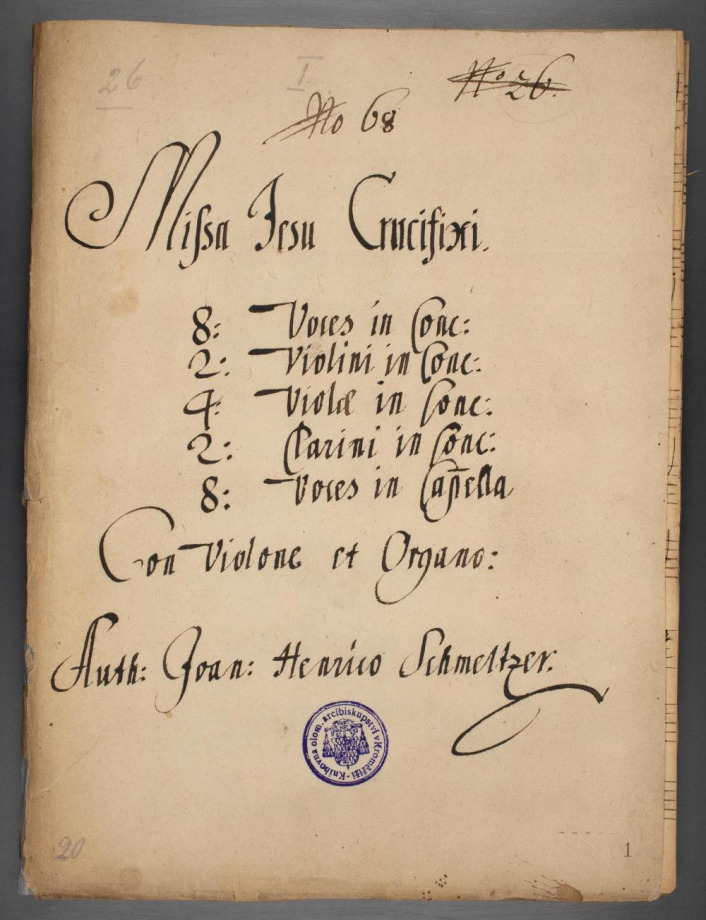 26
I.
No 26.
No 68
Missa Jesu Crucifixi.
8: Voces in Conc:
2: Violini in Conc:
4: Violæ in Conc:
2: Clarini in Conc:
8: Voces in Capella
Con Violone et Organo:
Auth: Joan: Henrico Schmeltzer.
Knihovna olom. arcibiskupství v Kroměříži
20
1